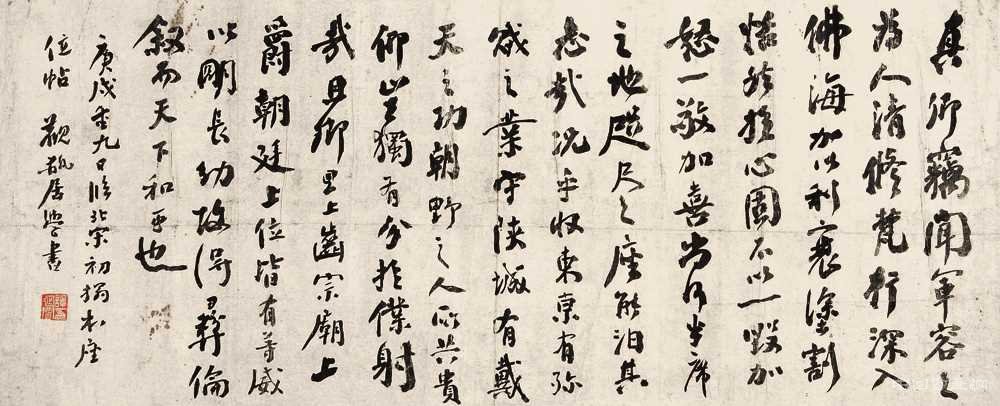 真卿竊聞軍容之
為人清修梵行深入
佛海加以利衰塗割
恬然於心固不以一毀加
怒一敬加喜尚何半席
之地咫尺之座能汩其
志哉況乎收東京有殄
賊之業守陝城有戴
天之功朝野之人所共貴
仰豈獨有分於僕射
哉且鄉里上齒宗廟上
爵朝廷上位皆有等威
以明長幼故得彝倫
敘而天下和平也
庚戌重九日臨北宋初搨本座
位帖 觀居學書